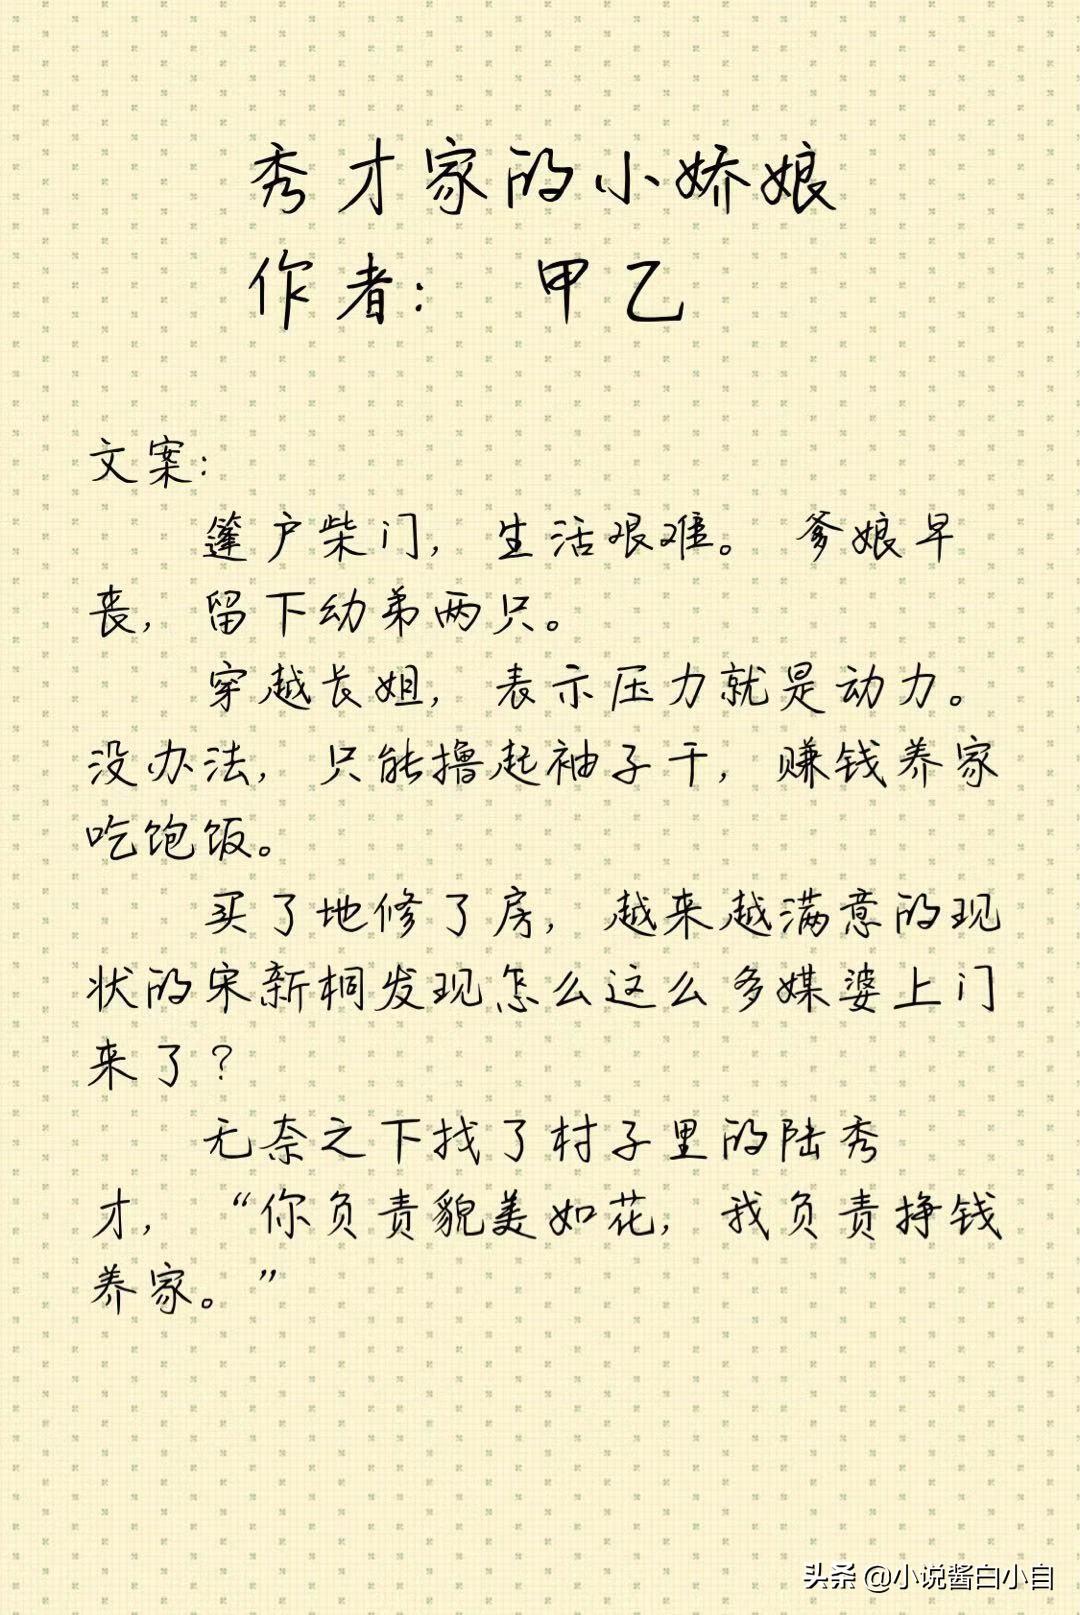 秀才家的小娇娘
作者： 甲乙
文案：
篷户柴门，生活艰难。 爹娘早
丧，留下幼弟两只。
穿越长姐，表示压力就是动力。
没办法，只能撸起袖子干，赚钱养家
吃饱饭。
买了地修了房，越来越满意的现
状的宋新桐发现怎么这么多媒婆上门
来了？
无奈之下找了村子里的陆秀
才，“你负责貌美如花，我负责挣钱
养家。”
头条 @小说酱白小白